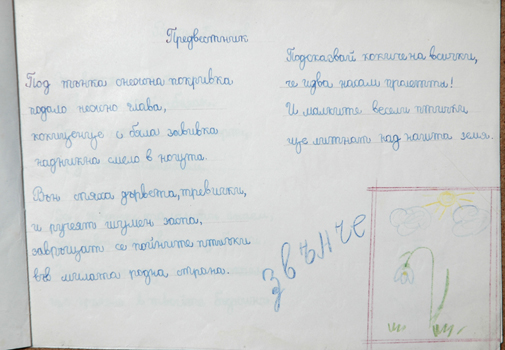 Предвестник
Под тънка снежна покривка
подало нежно глава,
кокиченце с бяла завивка
надникна смело в нощта.
Вън спяха дървета, тревички,
и ручеят шумен заспа,
завръщат се пойните птички
във милата родна страна.
Подсказвай кокиче на всички,
че идва насам пролетта!
И малките весели птички
ще литнат над нашта земя.
звънче